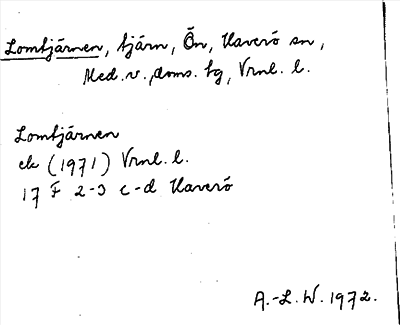 Lomtjärnen, tjärn, Ön, Haverö sn,
Med. v. doms. tg, Vrnl. l.
Lomtjärnen
ek (1971) Vrnl. l.
17 F 2-3 c-d Haverö
A.-L. W. 1972.